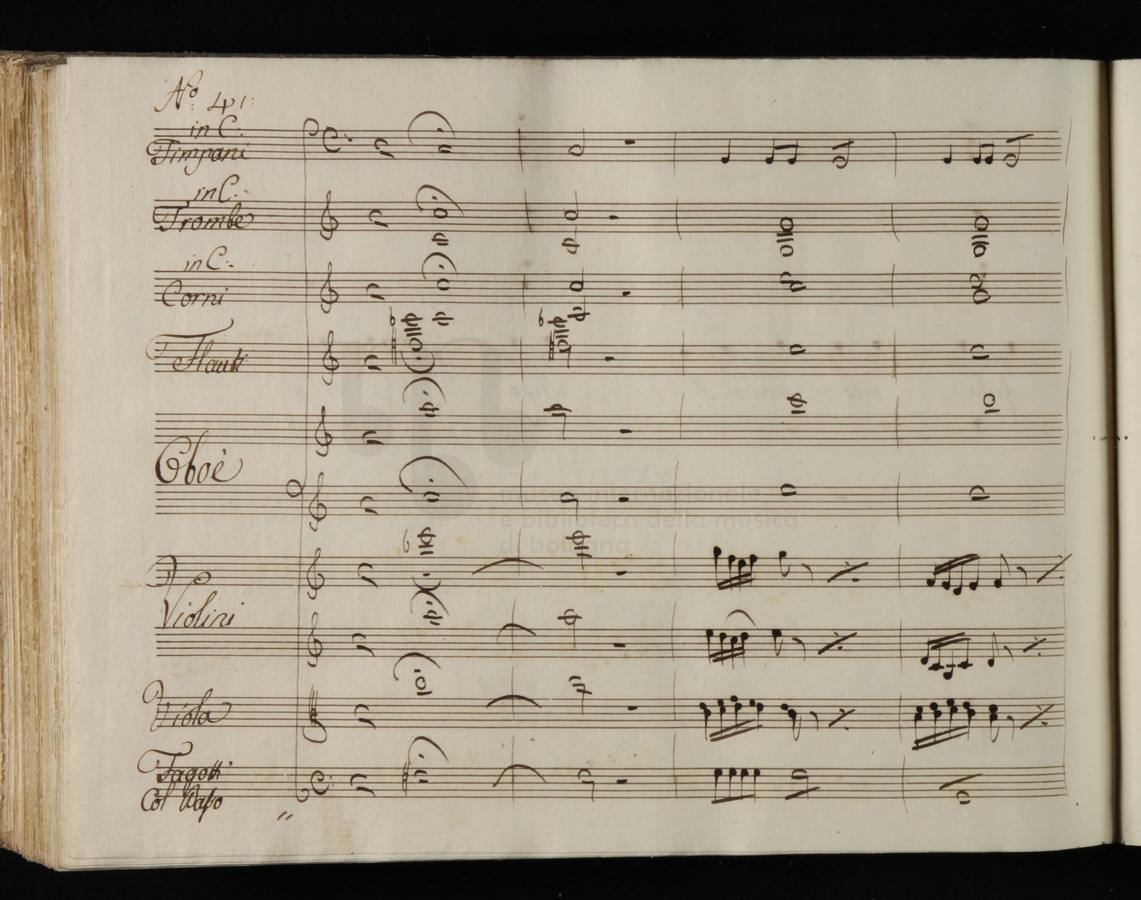 No: 41:
in C.
Timpani
in C:
Trombe
in C:
Corni
Flauti
Oboè
Violini
Viola
Fagotti
Col Basso
museo internazionale
e biblioteca della musica
di bologna